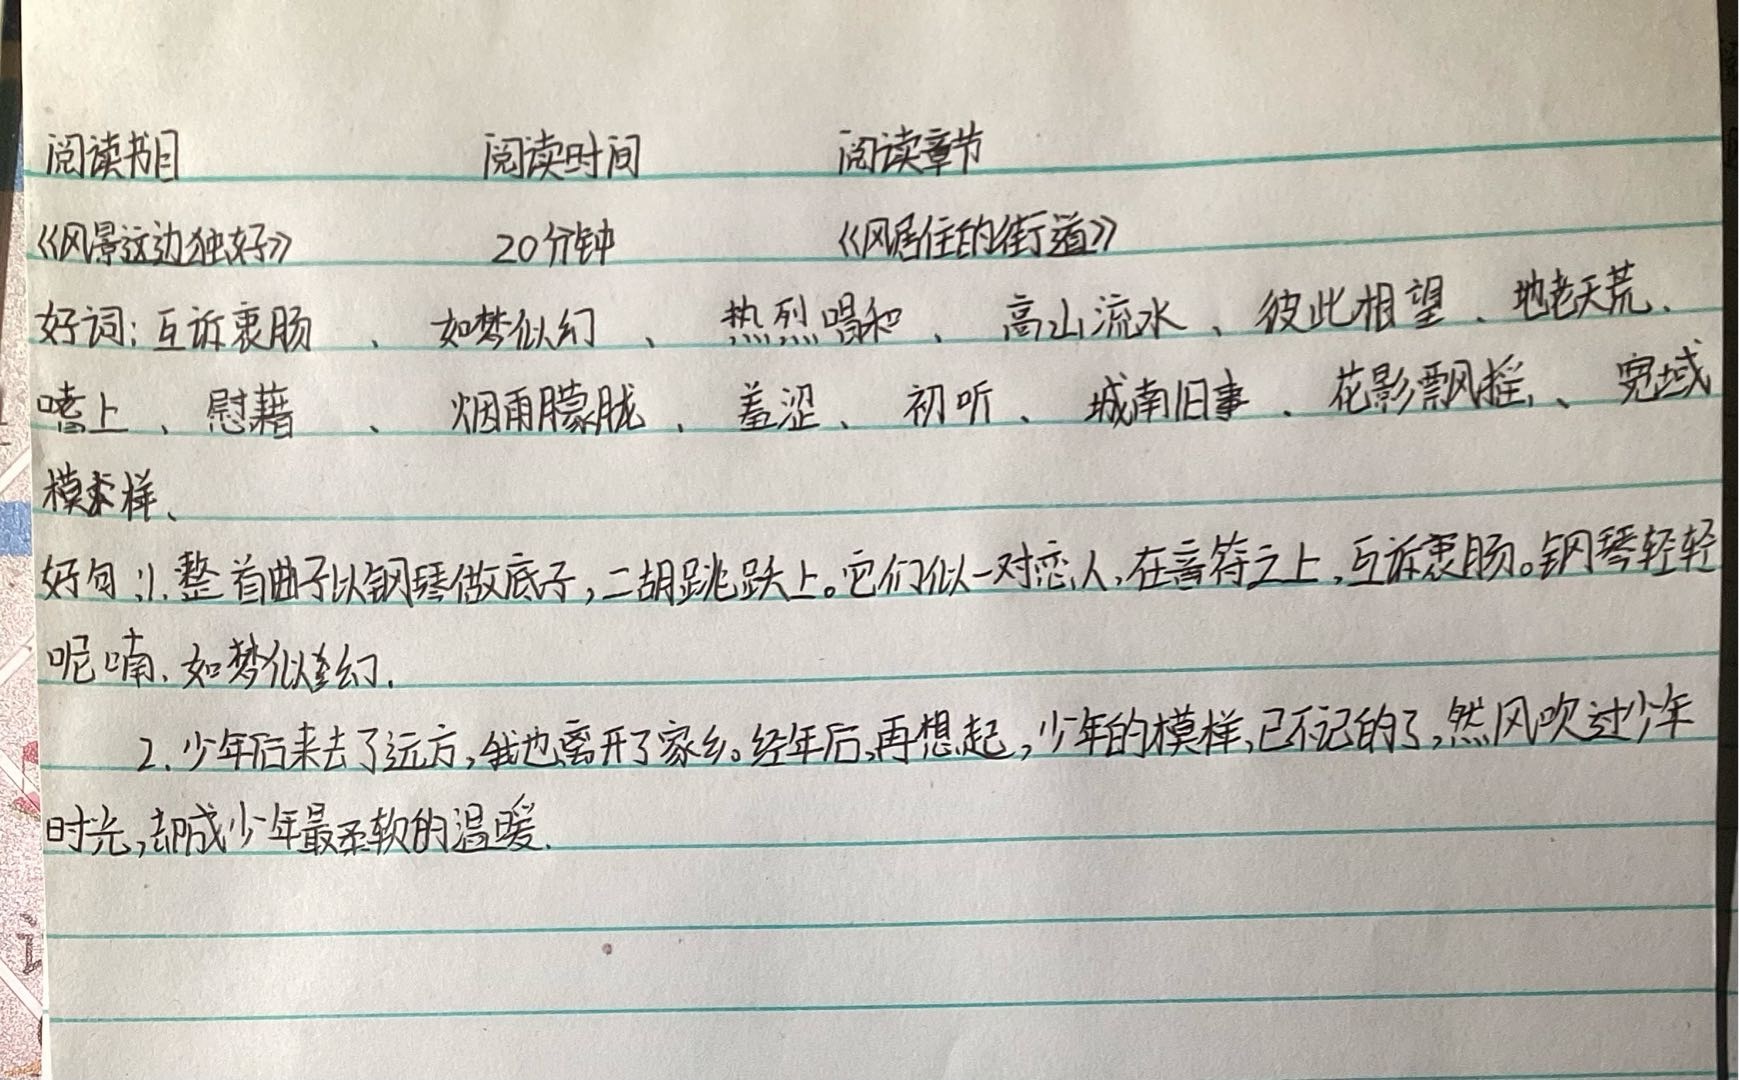 阅读书目 阅读时间 阅读章节
《风景这边独好》 20分钟 《风居住的街道》
好词:互诉衷肠、如梦似幻、热烈唱和、高山流水、彼此相望、地老天荒、
嗑上、慰藉、烟雨朦胧、羞涩、初听、城南旧事、花影飘摇、宽域
模样、
好句:1.整首曲子以钢琴做底子,二胡跳跃上。它们似一对恋人,在音符之上,互诉衷肠。钢琴轻轻
呢喃、如梦似幻.
2.少年后来去了远方,我也离开了家乡。经年后,再想起,少年的模样,已不记的了,然风吹过少年
时光,却成少年最柔软的温暖.